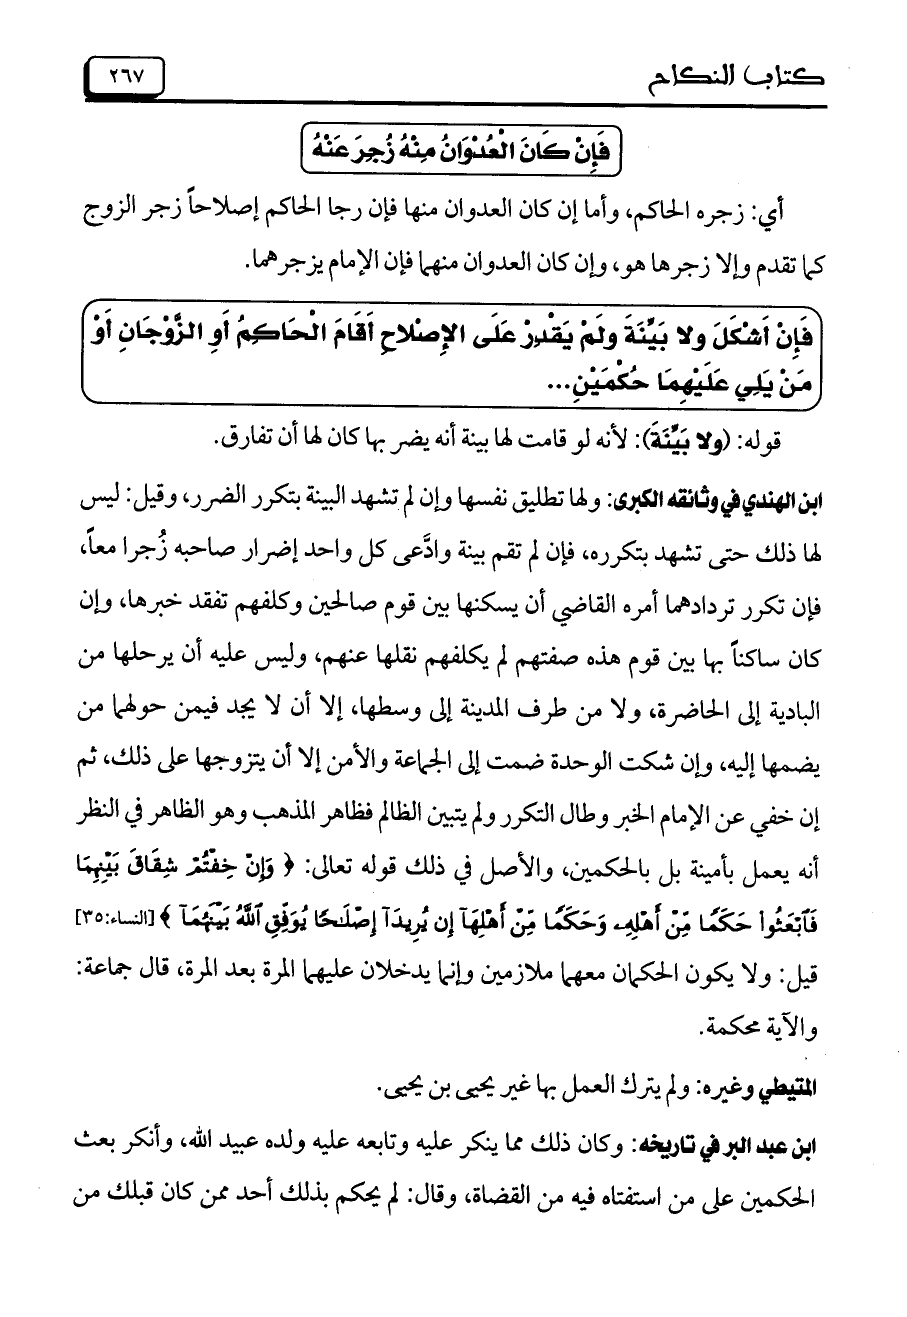 كتاب النكاح
٢٦٧
فَإِنْ كَانَ الْعُدْوَانُ مِنْهُ زُجِرَ عَنْهُ
أي: زجره الحاكم، وأما إن كان العدوان منها فإن رجا الحاكم إصلاحاً زجر الزوج
كما تقدم وإلا زجرها هو، وإن كان العدوان منهما فإن الإمام يزجرهما.
فَإِنْ أَشْكَلَ ولا بَيِّنَةَ ولَمْ يَقْدِرْ عَلَى الإِصْلاحِ أَقَامَ الْحَاكِمُ أَوِ الزَّوْجَانِ أَوْ
مَنْ يَلِي عَلَيْهِمَا حُكْمَيْنِ...
قوله: (ولا بَيِّنَةَ): لأنه لو قامت لها بينة أنه يضر بها كان لها أن تفارق.
ابن الهندي في وثائقه الكبرى: ولها تطليق نفسها وإن لم تشهد البينة بتكرر الضرر، وقيل: ليس
لها ذلك حتى تشهد بتكرره، فإن لم تقم بينة وادَّعى كل واحد إضرار صاحبه زُجرا معاً،
فإن تكرر تردادهما أمره القاضي أن يسكنها بين قوم صالحين وكلفهم تفقد خبرها، وإن
كان ساكناً بها بين قوم هذه صفتهم لم يكلفهم نقلها عنهم، وليس عليه أن يرحلها من
البادية إلى الحاضرة، ولا من طرف المدينة إلى وسطها، إلا أن لا يجد فيمن حولهما من
يضمها إليه، وإن شكت الوحدة ضمت إلى الجماعة والأمن إلا أن يتزوجها على ذلك، ثم
إن خفي عن الإمام الخبر وطال التكرر ولم يتبين الظالم فظاهر المذهب وهو الظاهر في النظر
أنه يعمل بأمينة بل بالحكمين، والأصل في ذلك قوله تعالى: ﴿ وَإِنْ خِفْتُمْ شِقَاقَ بَيْنِهِمَا
فَٱبْعَثُوا۟ حَكَمًا مِّنْ أَهْلِهِۦ وَحَكَمًا مِّنْ أَهْلِهَآ إِن يُرِيدَآ إِصْلَـٰحًا يُوَفِّقِ ٱللَّهُ بَيْنَهُمَآ ﴾ [النساء:٣٥]
قيل: ولا يكون الحكمان معهما ملازمين وإنما يدخلان عليهما المرة بعد المرة، قال جماعة:
والآية محكمة.
المتيطي وغيره: ولم يترك العمل بها غير يحيى بن يحيى.
ابن عبد البر في تاريخه: وكان ذلك مما ينكر عليه وتابعه عليه ولده عبيد الله، وأنكر بعث
الحكمين على من استفتاه فيه من القضاة، وقال: لم يحكم بذلك أحد ممن كان قبلك من